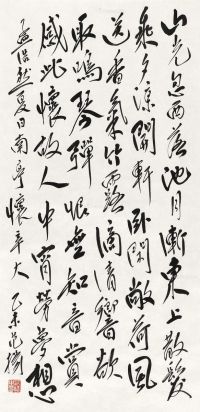 山光忽西落池月漸東上散髮
乘夕涼開軒臥閑敞荷風
送香氣竹露滴清響欲
取鳴琴彈恨無知音賞
感此懷故人中宵勞夢想
孟浩然夏日南亭懷辛大 乙未